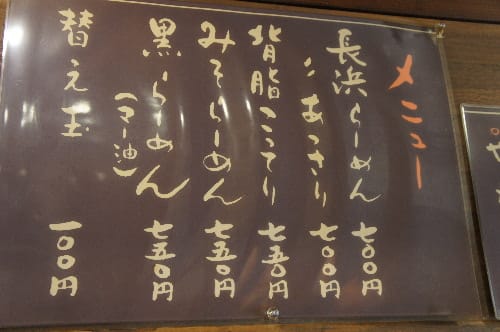 メニュー
長浜らーめん 七〇〇円
〃 あっさり 七〇〇円
背脂こってり 七五〇円
みそらーめん 七五〇円
黒らーめん(マー油) 七五〇円
替え玉 一〇〇円